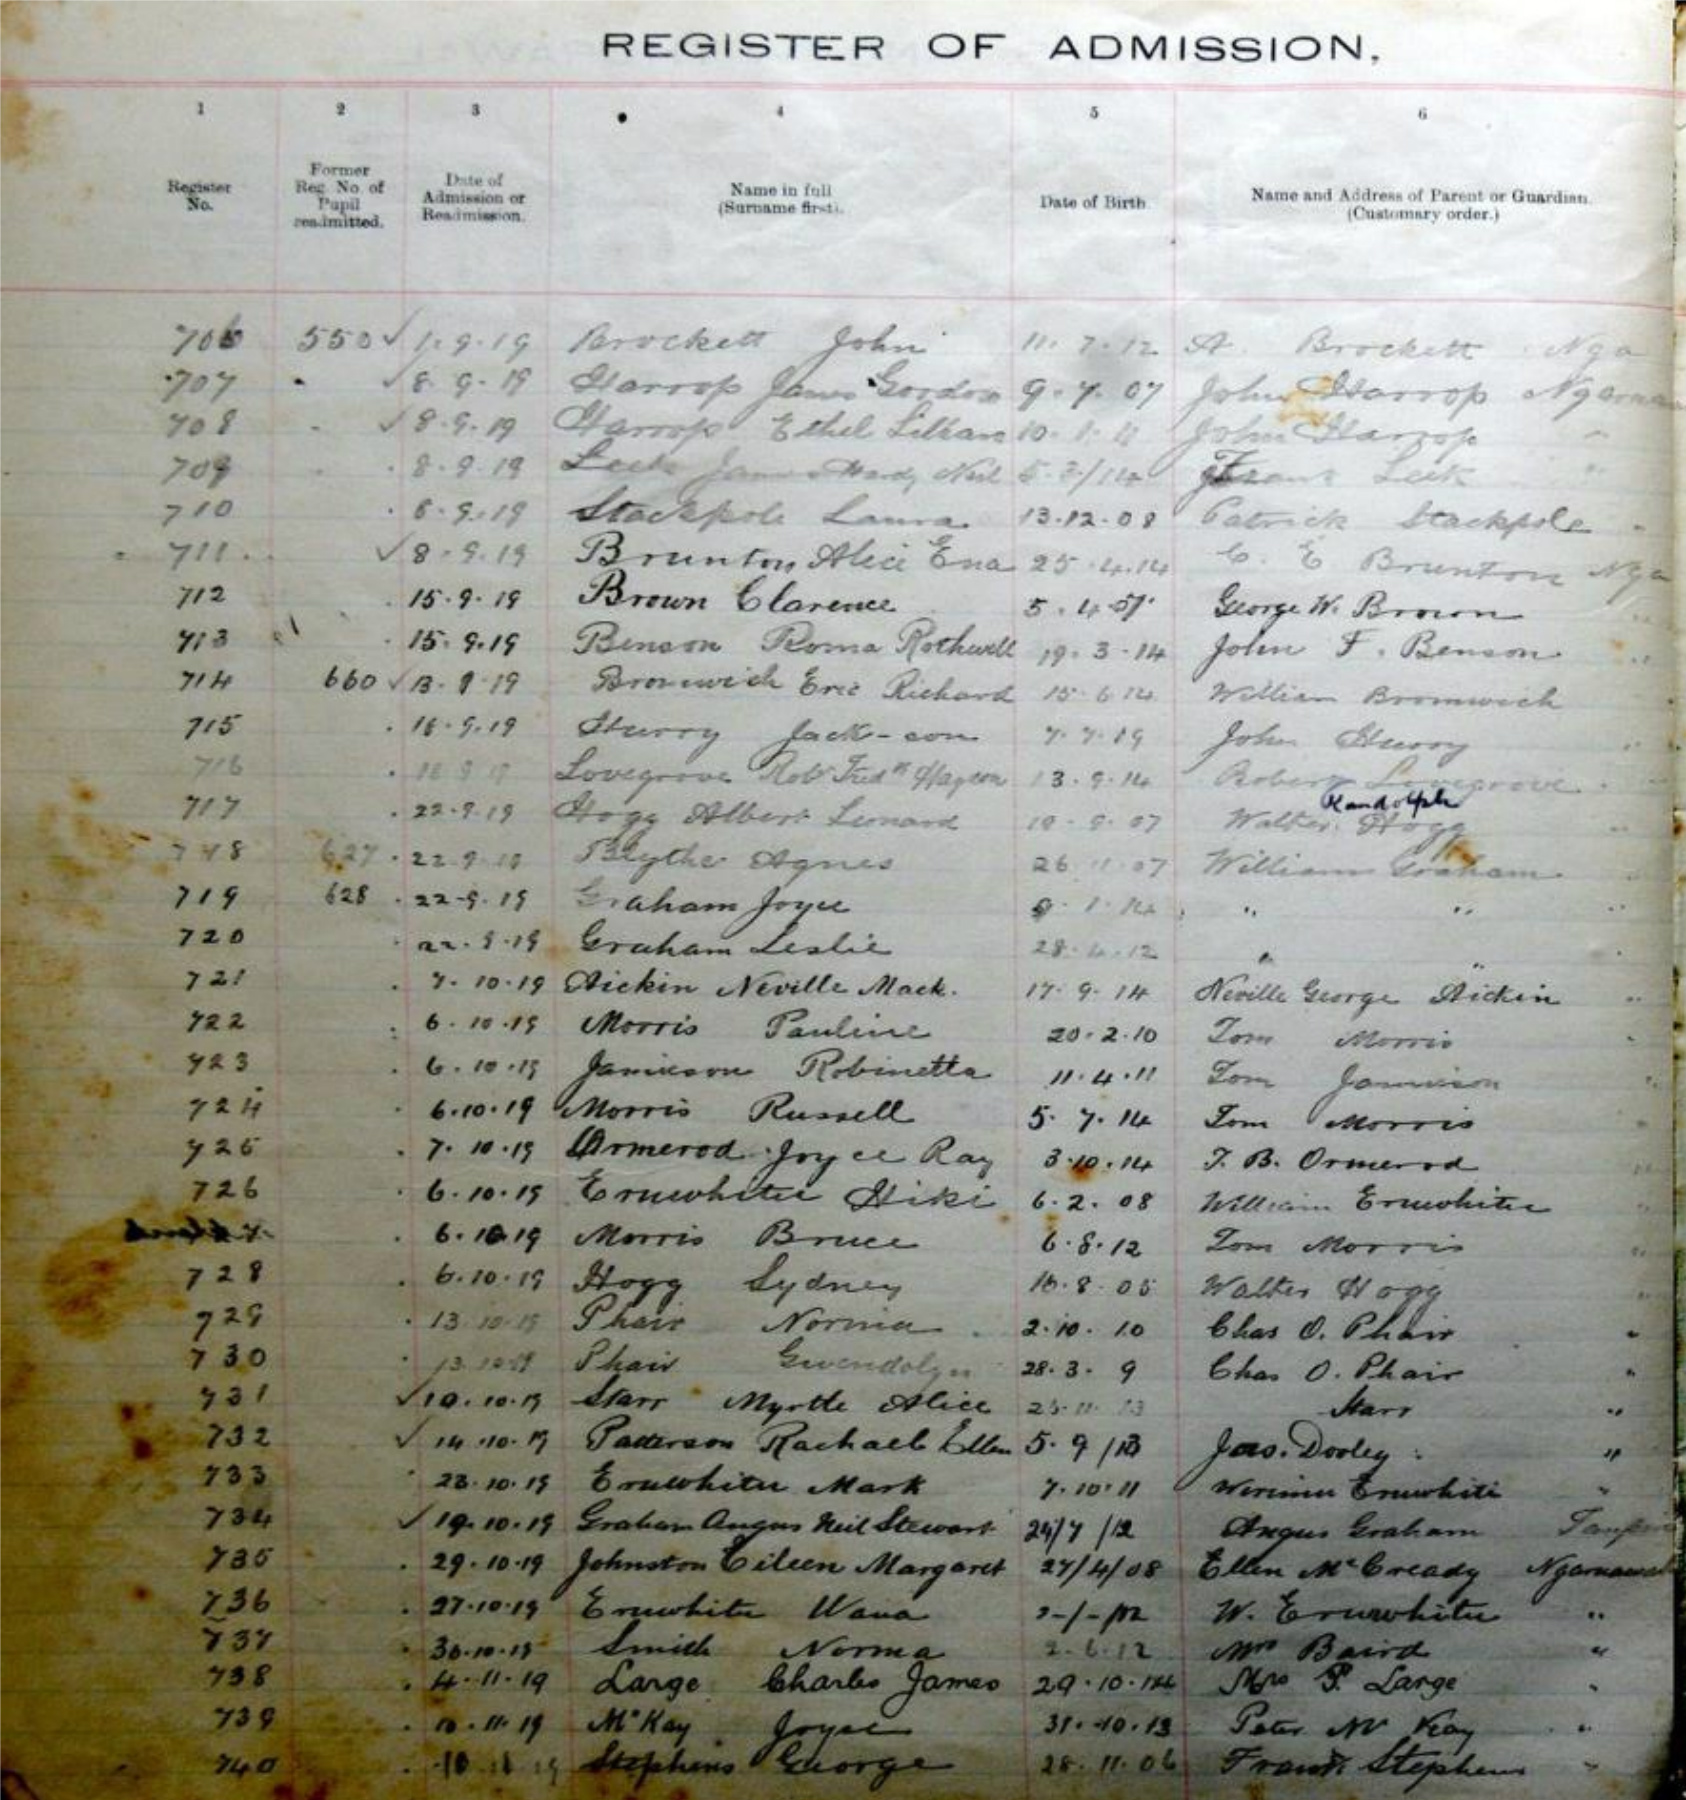 REGISTER OF ADMISSION.
1 2 3 4 5 6
Register No. Former Reg. No. of Pupil readmitted. Date of Admission or Readmission. Name in full (Surname first). Date of Birth Name and Address of Parent or Guardian. (Customary order.)
706 550 ✓ 1.9.19 Brockett John 11.7.12 A. Brockett Nga
707 ✓ 8.9.19 Harrop James Gordon 9.7.07 John Harrop
708 ✓ 8.9.19 Harrop Ethel Lillian 10.1.11 John Harrop "
709 8.9.19 Leek Hardy Neil Frank Leek "
710 8.9.19 Stackpole Laura 13.12.08 Patrick Stackpole "
711 ✓ 8.9.19 Brunton Alice Ena 25.4.14 C. E Brunton Nga
712 15.9.19 Brown Clarence 5.4. George W. Brown "
713 15.9.19 Benson Roma Rothwell 19.3.14 John F. Benson "
714 660 ✓ Bromwich Eric Richard 15.6.14 William Bromwich
715 16.9.19 Hurry Jack-son John Hurry "
716 Lovegrove Robt Fredk 13.9.14 Robert Lovegrove
Randolph
717 22.9.19 Hogg Albert Leonard Walter Hogg "
718 627 22.9.19 Blythe Agnes 26.11.07 William Graham "
719 628 22-9.19 Graham Joyce 9.1.14 " " "
720 22.9.19 Graham Leslie 28.4.12 " "
721 7.10.19 Aickin Neville Mack. 17.9.14 Neville George Aickin "
722 6.10.19 Morris Pauline 20.2.10 Tom Morris "
723 6.10.19 Jamieson Robinetta 11.4.11 Tom Jamieson "
724 6.10.19 Morris Russell 5.7.14 Tom Morris "
725 7.10.19 Ormerod Joyce Ray 3.10.14 T. B. Ormerod "
726 6.10.19 Eruwhitu Hiki 6.2.08 William Eruwhitu "
6.10.19 Morris Bruce 6.8.12 Tom Morris "
728 6.10.19 Hogg Sydney 16.8.05 Walter Hogg "
729 13.10.19 Phair Norma 2.10.10 Chas O. Phair "
730 13.10.19 Phair Gwendolyn 28.3.9 Chas O. Phair "
731 ✓ Starr Myrtle Alice Starr "
732 ✓ 14.10.19 Patterson Rachael Ellen 5.9/13 Jas. Dooley "
733 23.10.19 Eruwhitu Mark 7.10.11 Eruwhiti "
734 ✓ 19.10.19 Graham Angus Neil Stewart 24/7/12 Angus Graham
735 29.10.19 Johnston Eileen Margaret 27/4/08 Ellen McCready
736 27.10.19 Eruwhitu Wana W. Eruwhitu "
737 30.10.19 Smith Norma 2.6.12 Mrs Baird "
738 4.11.19 Large Charles James 29.10.14 Mrs P. Large "
739 10.11.19 McKay Joyce 31.10.13 Peter McKay "
740 Stephens George 28.11.06 Frank Stephens "